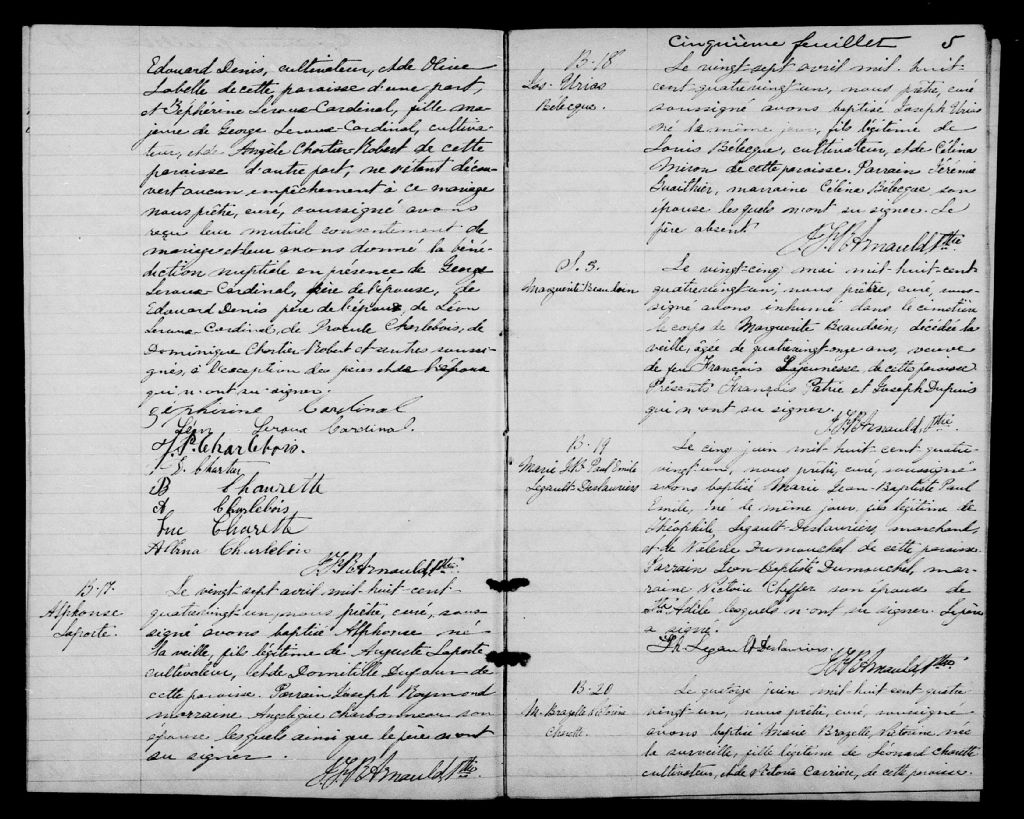 Edouard Denis, cultivateur, et de Olive
Labelle de cette paroisse d'une part,
et Zéphérine Leroux-Cardinal, fille ma-
jeure de George Leroux-Cardinal, cultiva-
teur, et de Angèle Chartier-Robert de cette
paroisse d'autre part, ne s'étant décou-
vert aucun empêchement à ce mariage
nous prêtre, curé, soussigné avons
reçu leur mutuel consentement de
mariage et leur avons donné la béné-
diction nuptiale en présence de George
Leroux-Cardinal, père de l'épouse, de
Edouard Denis père de l'époux, de Léon
Leroux-Cardinal, de Procule Charlebois, de
Dominique Chartier Robert et autres soussi-
gnés, à l'exception des pères et de l'époux
qui n'ont su signer.
Zephirine Cardinal
Léon Leroux Cardinal.
J. P. Charlebois.
E. Chartier
B Chaurette
A Charlebois
Luc Charette
Albina Charlebois
J. F. R. B. Arnauld, Ptre
B-17
Alphonse
Laporte.
Le vingt-sept avril mil-huit-cent-
quatrevingt-un, nous prêtre, curé, sous-
signé avons baptisé Alphonse né
la veille, fils légitime de Auguste Laporte
cultivateur, et de Domitille Dufour de
cette paroisse. Parrain Joseph Raymond
marraine Angélique Charbonneau son
épouse lesquels ainsi que le père n'ont
su signer.
Arnauld Ptre
Cinquième feuillet 5
B-18
Jos- Urias
Bélecque.
Le vingt-sept avril mil huit-
cent-quatrevingt un, nous prêtre, curé
soussigné avons baptisé Joseph Urias
né le même jour, fils légitime de
Louis Bélecque, cultivateur, et de Célina
Miron de cette paroisse. Parrain Jérémie
Gauthier, marraine Célina Bélecque son
épouse lesquels n'ont su signer. Le
père absent
Arnauld Ptre
S. 3.
Marguerite Beaudoin
Le vingt-cinq mai mil-huit-cent
quatrevingt-un, nous prêtre, curé sous-
signé avons inhumé dans le cimetière
le corps de Marguerite Beaudoin, décédée la
veille, âgée de quatrevingt-onze ans, veuve
de feu François Lajeunesse de cette paroisse
Présents François Patrie et Joseph Dupuis
qui n'ont su signer.
Arnauld, Ptre
B-19
Marie J-Bte Paul Emile
Legault-Deslauriers
Le cinq juin mil-huit-cent-quatre
vingt-un, nous prêtre, curé, soussigné
avons baptisé Marie Jean-Baptiste Paul
Emile, né le même jour, fils légitime de
Théophile Legault-Deslauriers, marchand,
et de Valérie Dumouchel de cette paroisse.
Parrain Léon-Baptiste Dumouchel, mar-
raine Victoire Cheffer son épouse de
Ste Adèle lesquels n'ont su signer. Le père
a signé.
Th. Legault Deslauriers.
Arnauld, Ptre
B-20
M. Brazelle Victorine
Charette.
Le quatorze juin mil-huit cent quatre
vingt-un, nous prêtre, curé, soussigné
avons baptisé Marie Brazelle Victorine, née
la surveille, fille légitime de Léonard Charette
cultivateur, et de Victoria Carrière, de cette paroisse.